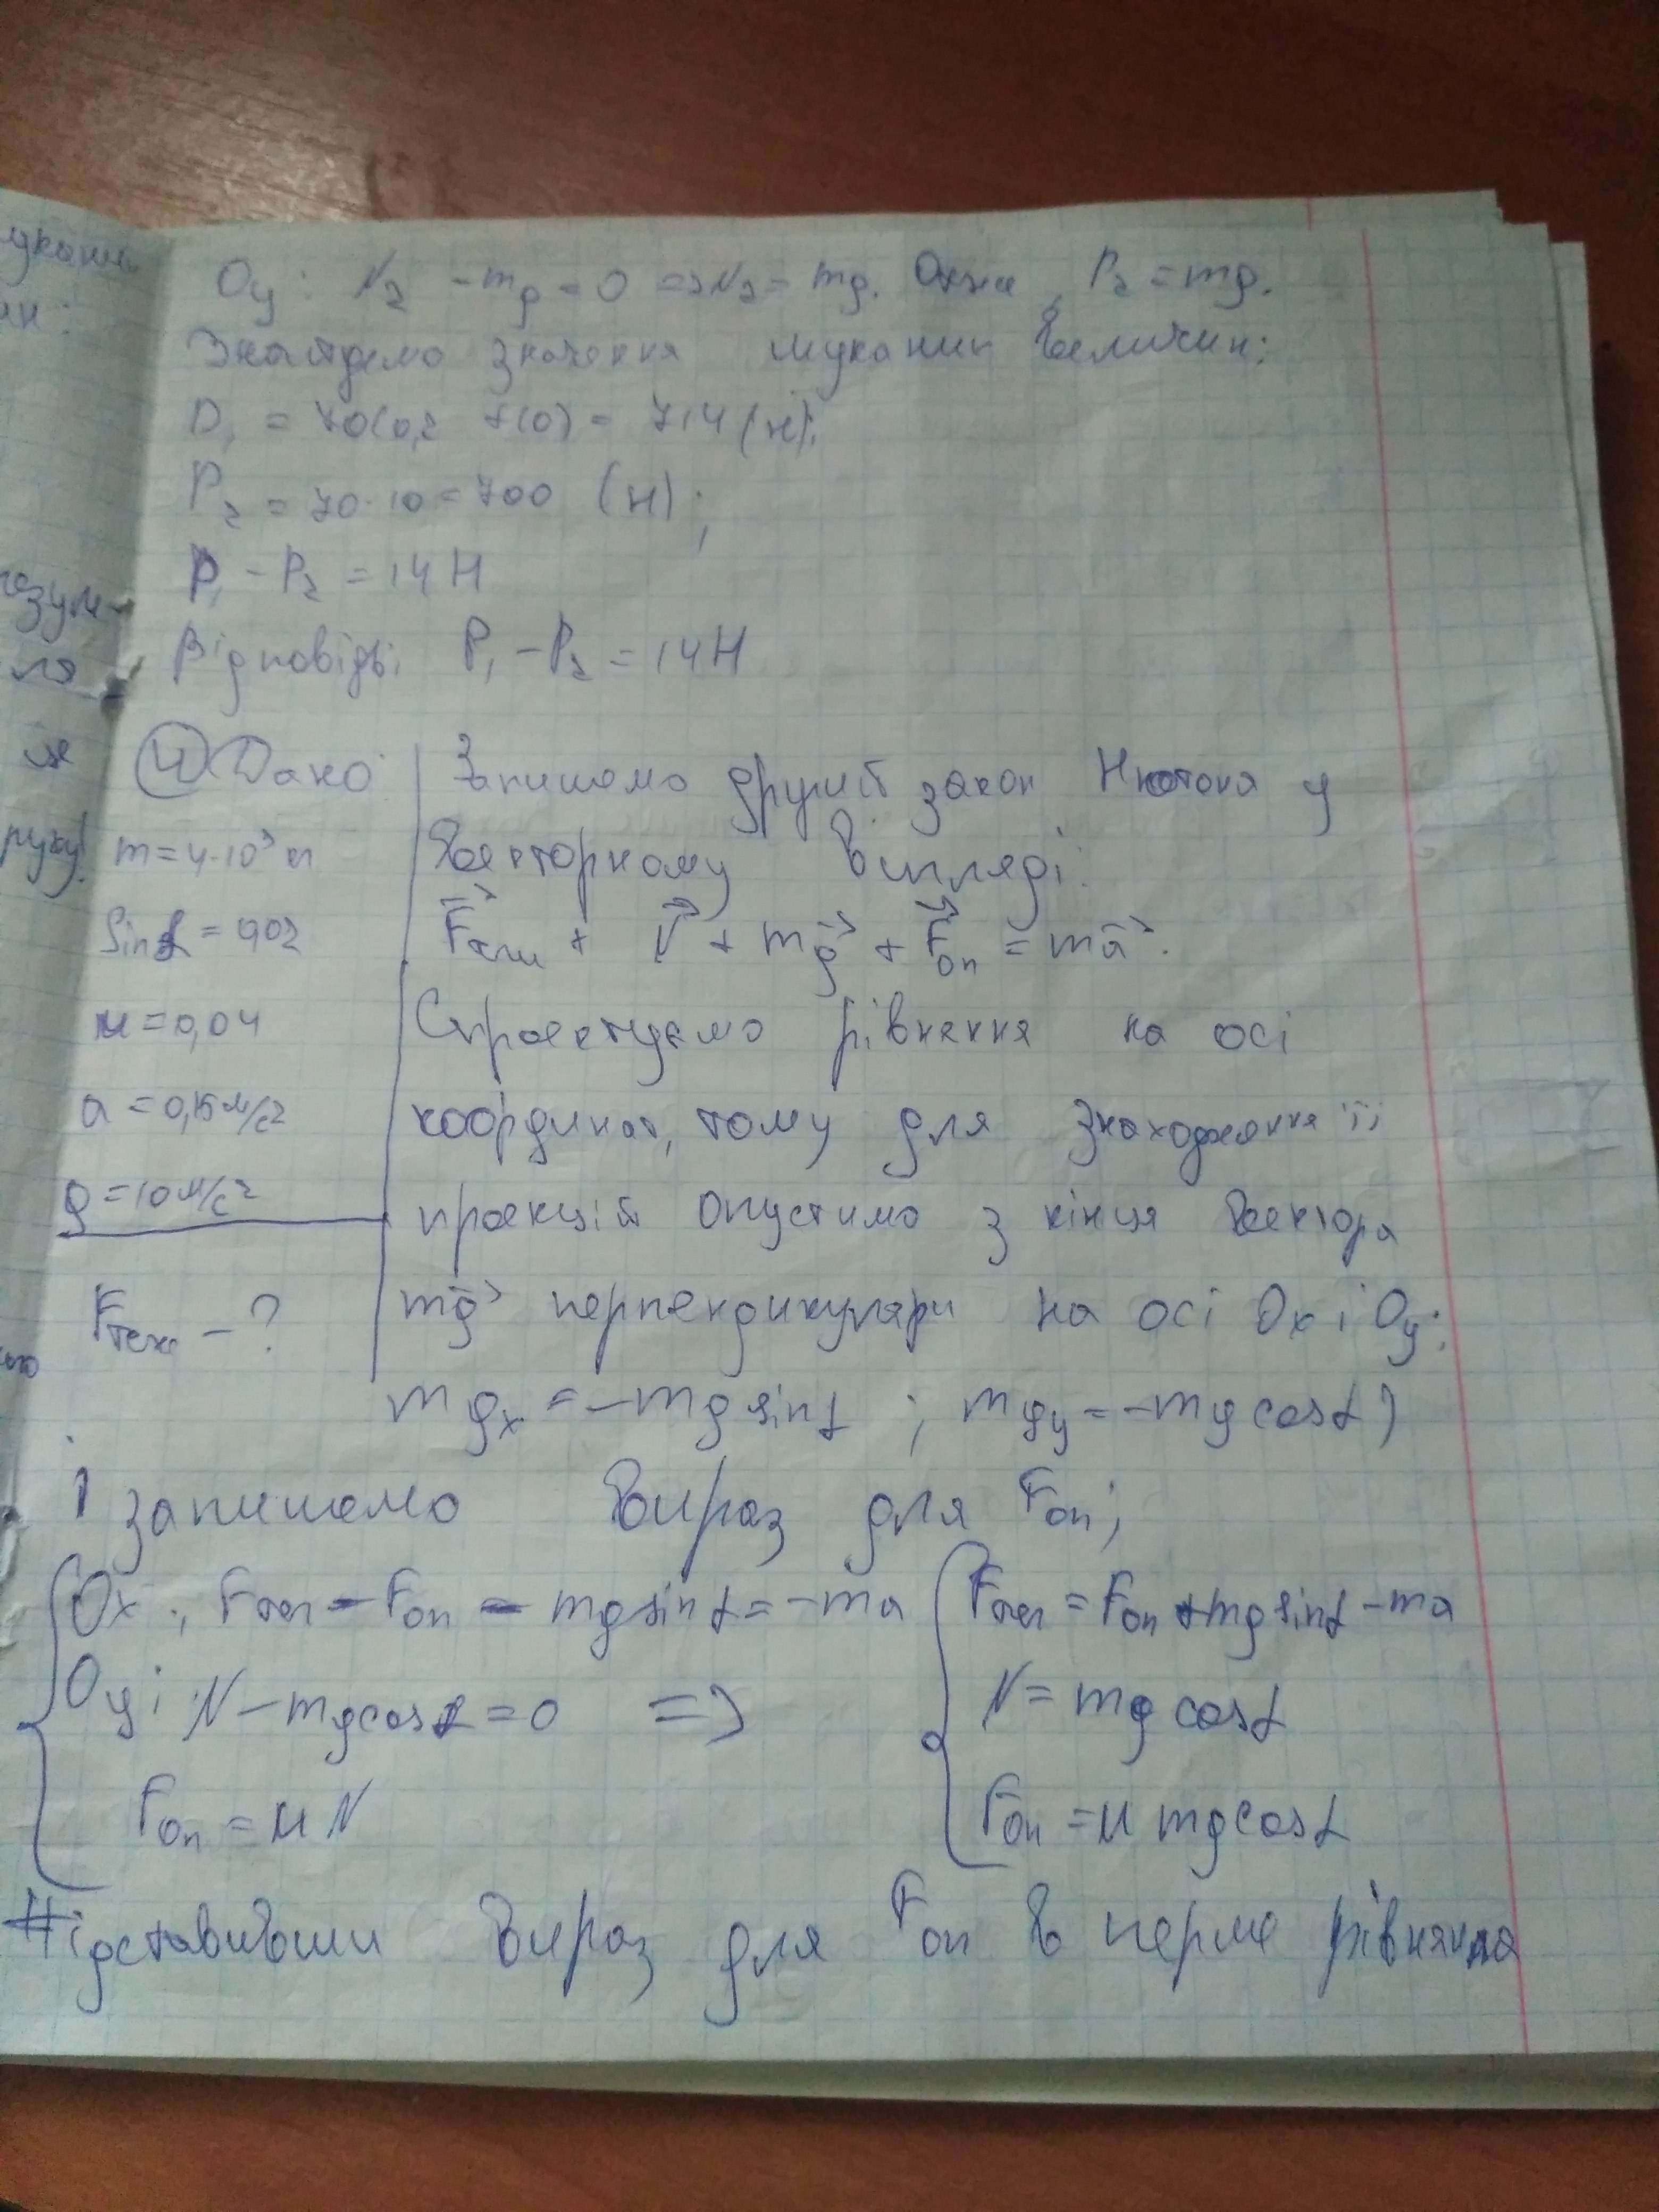 Oy: N₂ - mg = 0 => N₂ = mg. Отже, P₂ = mg.
Знайдемо значення шуканих величин:
P₁ = 70(0,2 +10) = 714 (Н);
P₂ = 70·10 = 700 (Н);
P₁ - P₂ = 14 Н
Відповідь: P₁ - P₂ = 14 Н
4 Дано:
m = 4·10³ кг
sinα = 0,02
μ = 0,04
a = 0,15 м/с²
g = 10 м/с²
Fтяги - ?
Запишемо другий закон Ньютона у
векторному вигляді:
F⃗тяги + N⃗ + mg⃗ + F⃗оп = ma⃗.
Спроектуємо рівняння на осі
координат, тому для знаходження її
проекцій опустимо з кінця вектора
mg⃗ перпендикуляри на осі Ox і Oy:
mgₓ = -mg sinα ; mgy = -mg cosα)
і запишемо вираз для Fоп;
Ox: Fтяг - Fоп - mg sinα = -ma
Oy: N - mg cosα = 0 =>
Fоп = μN
Fтяг = Fоп + mg sinα - ma
N = mg cosα
Fоп = μ mg cosα
Підставивши вираз для Fоп в перше рівняння